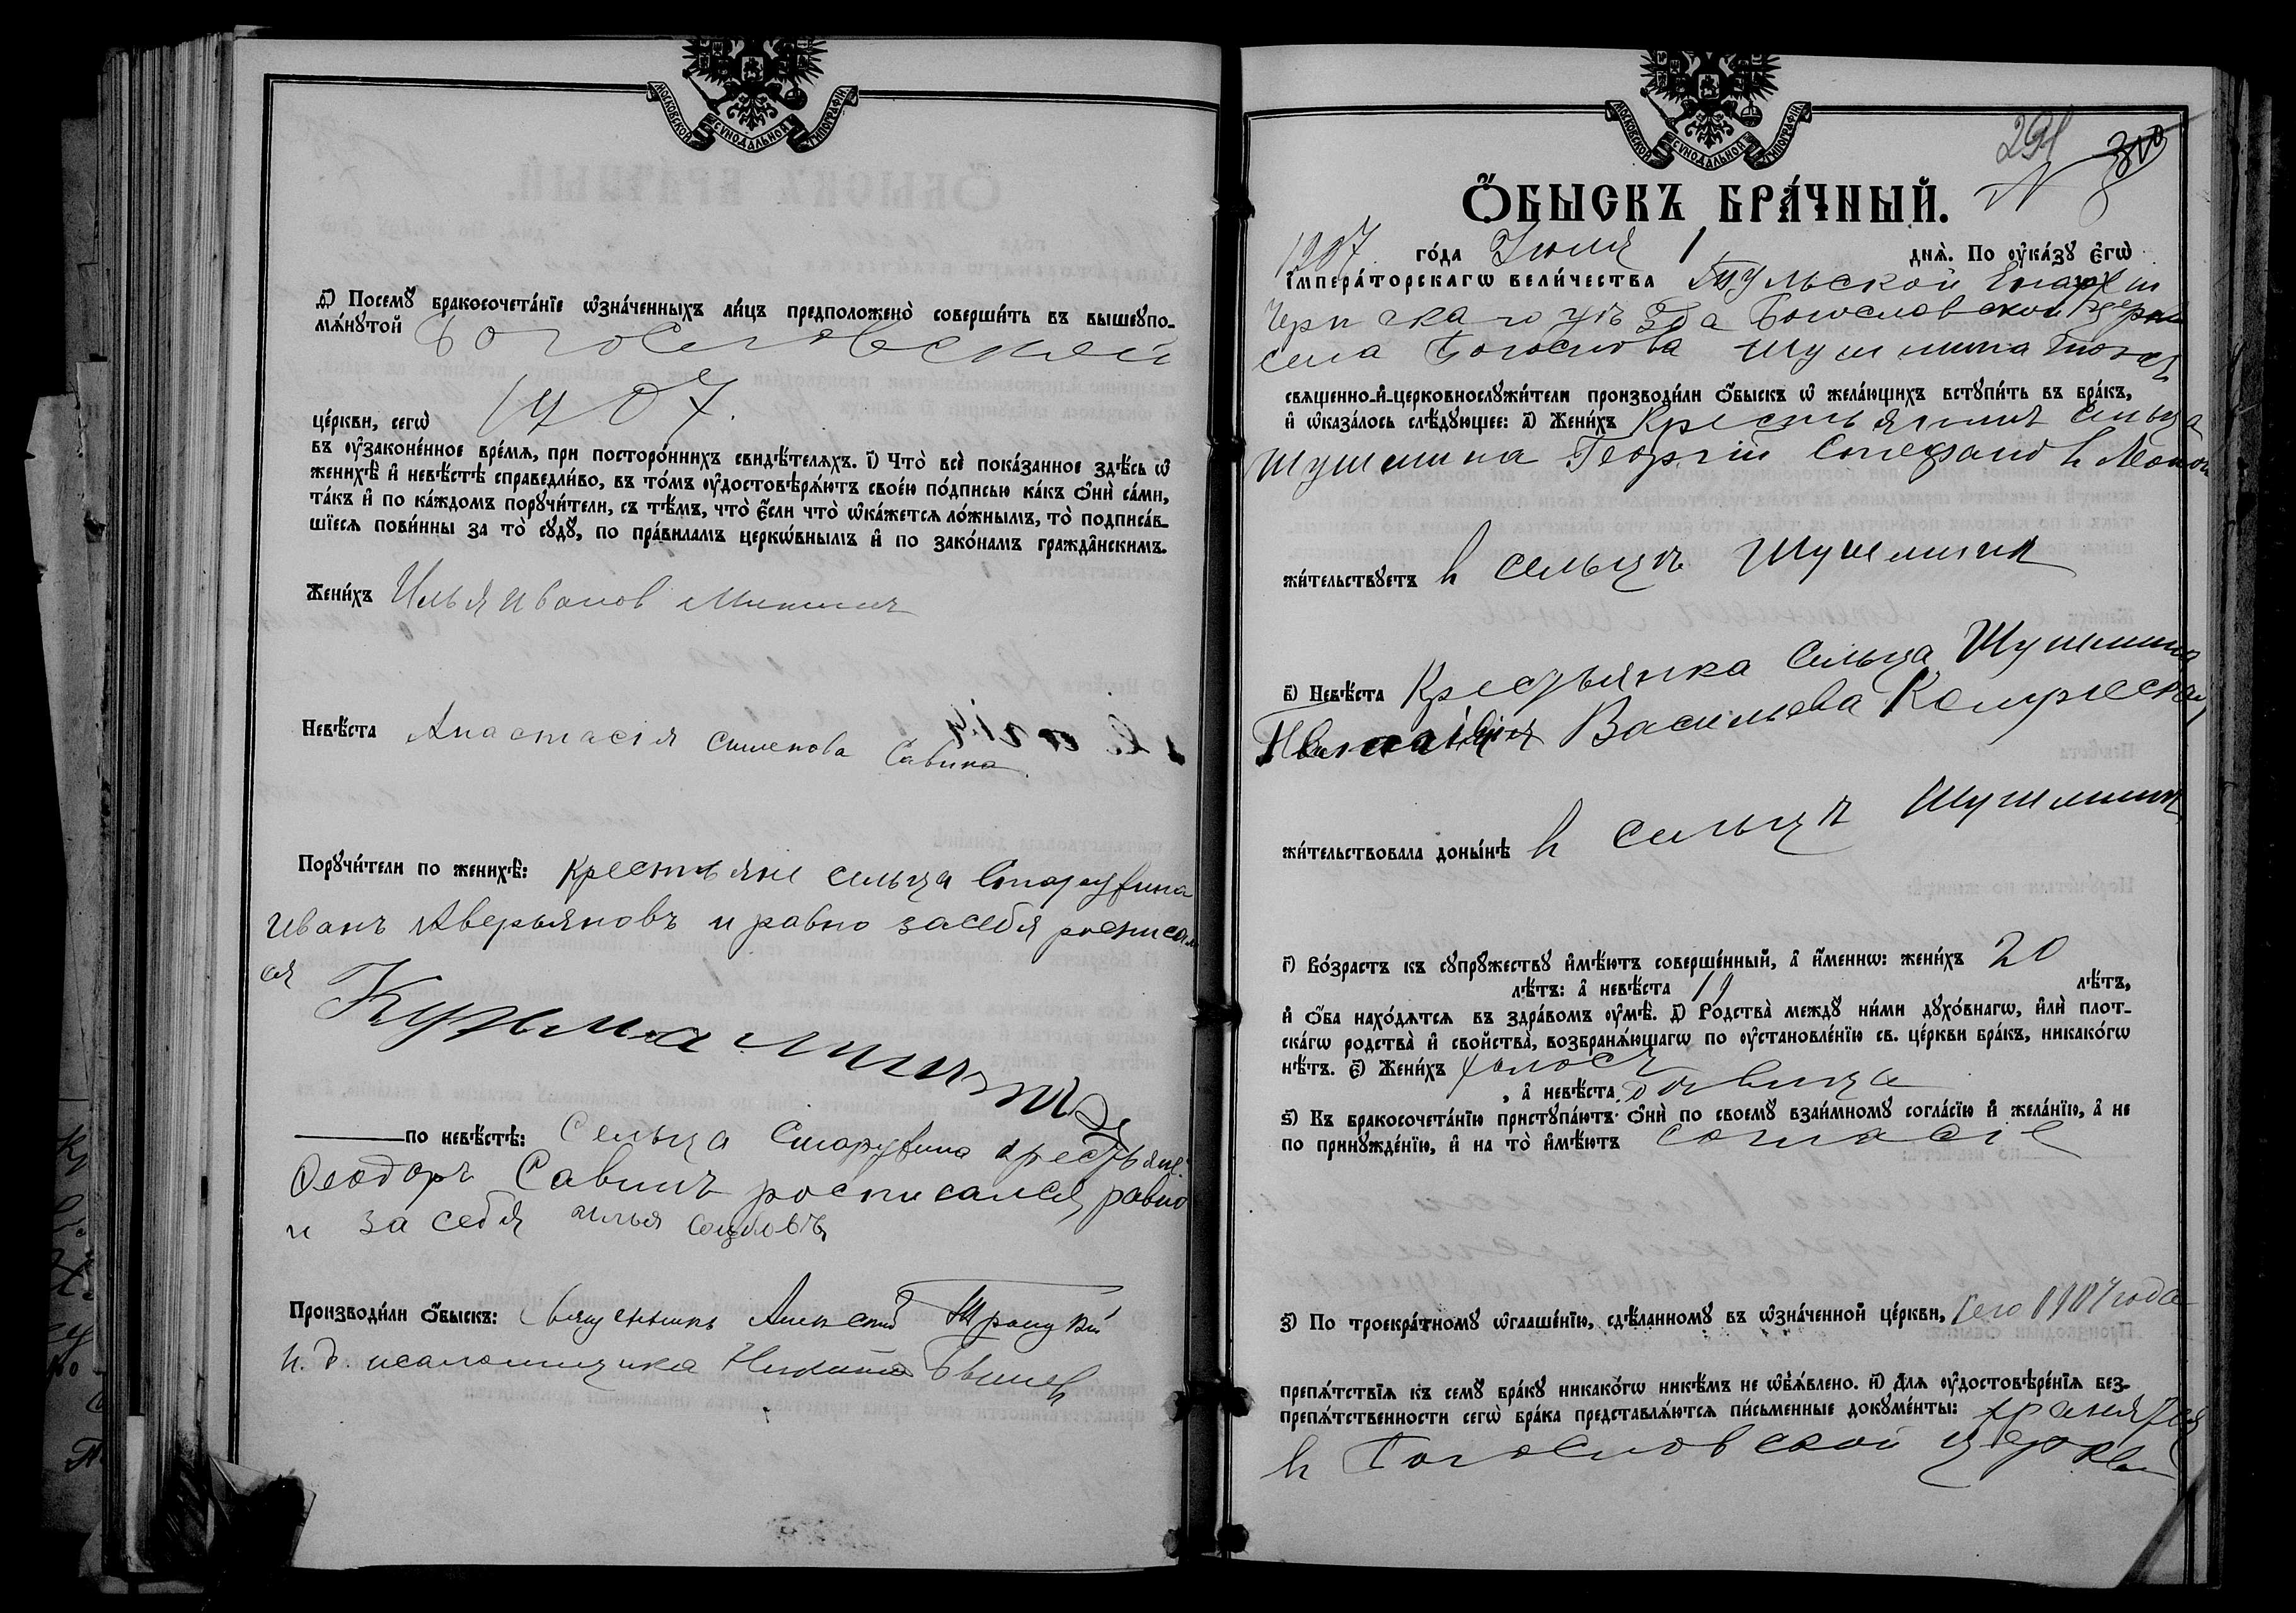 МОСКОВСКОЙ СѴНОДАЛЬНОЙ ТИПОГРАФІИ
д҃) Посемꙋ бракосочета́нїе ѡ҆зна́ченныхъ ли́цъ предположено̀ соверши́ть въ вышеупо-
мѧ́нꙋтой Богословской
це́ркви, сегѡ̀ 1907.
въ ᲂу҆законе́нное вре́мѧ, при посторо́ннихъ свидѣ́телѧхъ. і҃) Что̀ всѐ пока́занное здѣ́сь ѡ҆
женихѣ̀ и҆ невѣ́стѣ справедли́во, въ то́мъ ᲂу҆достовѣрѧ́ютъ свое́ю по́дписью ка́къ ѻ҆нѝ са́ми,
та́къ и҆ по ка́ждомъ порꙋчи́тели, съ тѣ́мъ, что̀ є҆́сли что̀ ѡ҆ка́жетсѧ ло́жнымъ, то̀ подписа́в-
шїесѧ пови́нны за то̀ сꙋдꙋ̀, по пра́виламъ церкѡ́внымъ и҆ по зако́намъ гражда̂нскимъ.
Жени́хъ Илья Иванов Микишин
Невѣ́ста Анастасія Сименова
Савина
Порꙋчи́тели по женихѣ̀: крестьяне сельца Старухина
Иванъ Аверьяновъ и равно за себя росписал
ся
Кузьма
по невѣ́стѣ: Сельца Старухина крестьяне
Феодоръ Савинъ росписался, равно
и за себя Илья
Производи́ли ѻ҆́быскъ: Священникъ Алексій Троицкій
И. д. псаломщика Никита
МОСКОВСКОЙ СѴНОДАЛЬНОЙ ТИПОГРАФІИ
291 310
N 8
Ѻ҆́БЫСКЪ БРА́ЧНЫЙ.
1907 го́да Июля 1 днѧ̀. По ᲂу҆ка́зꙋ є҆гѡ̀
і҆мпера́торскагѡ вели́чества Тульской Епархіи
Чернскаго уѣзда Богословской Церкви
села Богослова Шушмина тожъ
свѧще́нно-и҆-церковнослꙋжи́тели производи́ли ѻ҆́быскъ ѡ҆ жела́ющихъ встꙋпи́ть въ бра́къ,
и҆ ѡ҆каза́лось слѣ́дꙋющее: а҃) Жени́хъ Крестьянинъ сельца
Шушмина Георгій Стефанов
жи́тельствꙋетъ в сельцѣ Шушмине
в҃) Невѣ́ста Крестьянка сельца Шушмина
Васильева
жи́тельствовала доны́нѣ в сельцѣ Шушмине
г҃) Во́зрастъ къ сꙋпрꙋ́жествꙋ и҆мѣ́ютъ соверше́нный, а҆ и҆́меннѡ: жени́хъ 20
лѣ́тъ: а҆ невѣ́ста 19 лѣ́тъ,
и҆ ѻ҆́ба нахо́дѧтсѧ въ здра́вомъ ᲂу҆мѣ̀. д҃) Родства̀ междꙋ̀ ни́ми дꙋхо́внагѡ, и҆лѝ плот-
ска́гѡ родства̀ и҆ сво́йства̀, возбранѧ́ющагѡ по ᲂу҆становле́нїю св. це́ркви бра́къ, никако́гѡ
нѣ́тъ. є҃) Жени́хъ холостъ
, а҆ невѣ́ста дѣвица
ѕ҃) Къ бракосочета́нїю пристꙋпа́ютъ ѻ҆нѝ по своемꙋ̀ взаи́мномꙋ согла́сїю и҆ жела́нїю, а҆ не
по принꙋжде́нїю, и҆ на то̀ и҆мѣ́ютъ согласіе
з҃) По троекра́тномꙋ ѡ҆глаше́нїю, сдѣ́ланномꙋ въ ѡ҆зна́ченной це́ркви, сего 1907 года
препѧ́тствїѧ къ семꙋ̀ бра́кꙋ никако́гѡ никѣ́мъ не ѡ҆б̾ѧ́влено. и҃) Длѧ ᲂу҆достовѣре́нїѧ без-
препѧ́тственности сегѡ̀ бра́ка представлѧ́ютсѧ пи́сьменные докꙋме́нты: хранятся
в Богословской церкви